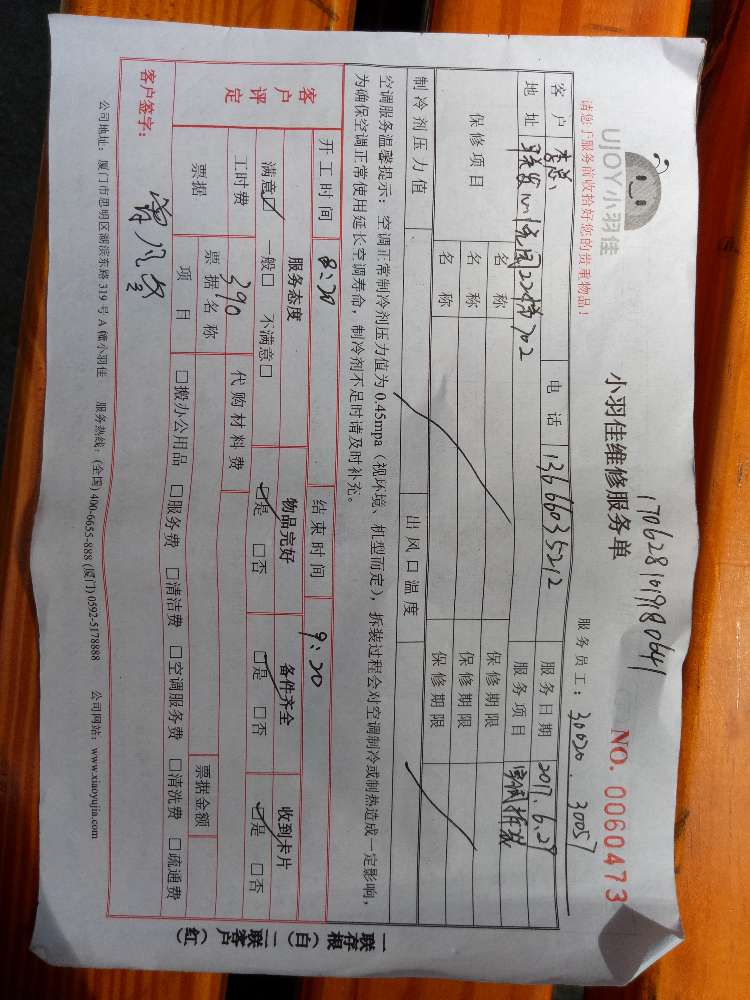 UJOY小羽佳
1706281019180641
小羽佳维修服务单
NO. 0060473
请您于服务前收拾好您的贵重物品！
服务员工：30020. 30057
客户 电话 13666035212 服务日期 2017.6.29
地址 22梯702 服务项目 空调拆装
保修项目 名称 保修期限
名称 保修期限
名称 保修期限
制冷剂压力值 出风口温度
空调服务温馨提示：空调正常制冷剂压力值为0.45mpa（视环境、机型而定），拆装过程会对空调制冷或制热造成一定影响，
为确保空调正常使用延长空调寿命，制冷剂不足时请及时补充。
开工时间 8:20 结束时间 9:20
客户评定 服务态度 物品完好 备件齐全 收到卡片
满意☑ 一般□ 不满意□ ☑是 □否 ☑是 □否 ☑是 □否
工时费 390 代购材料费
票据 票据名称 票据金额
项目 □搬办公用品 □服务费 □清洁费 □空调服务费 □清洗费 □疏通费
客户签字：
公司地址：厦门市思明区湖滨东路319号A幢小羽佳 服务热线：(全国) 400-6655-888 (厦门) 0592-5178888 公司网站：www.xiaoyujia.com
一联存根（白）二联客户（红）